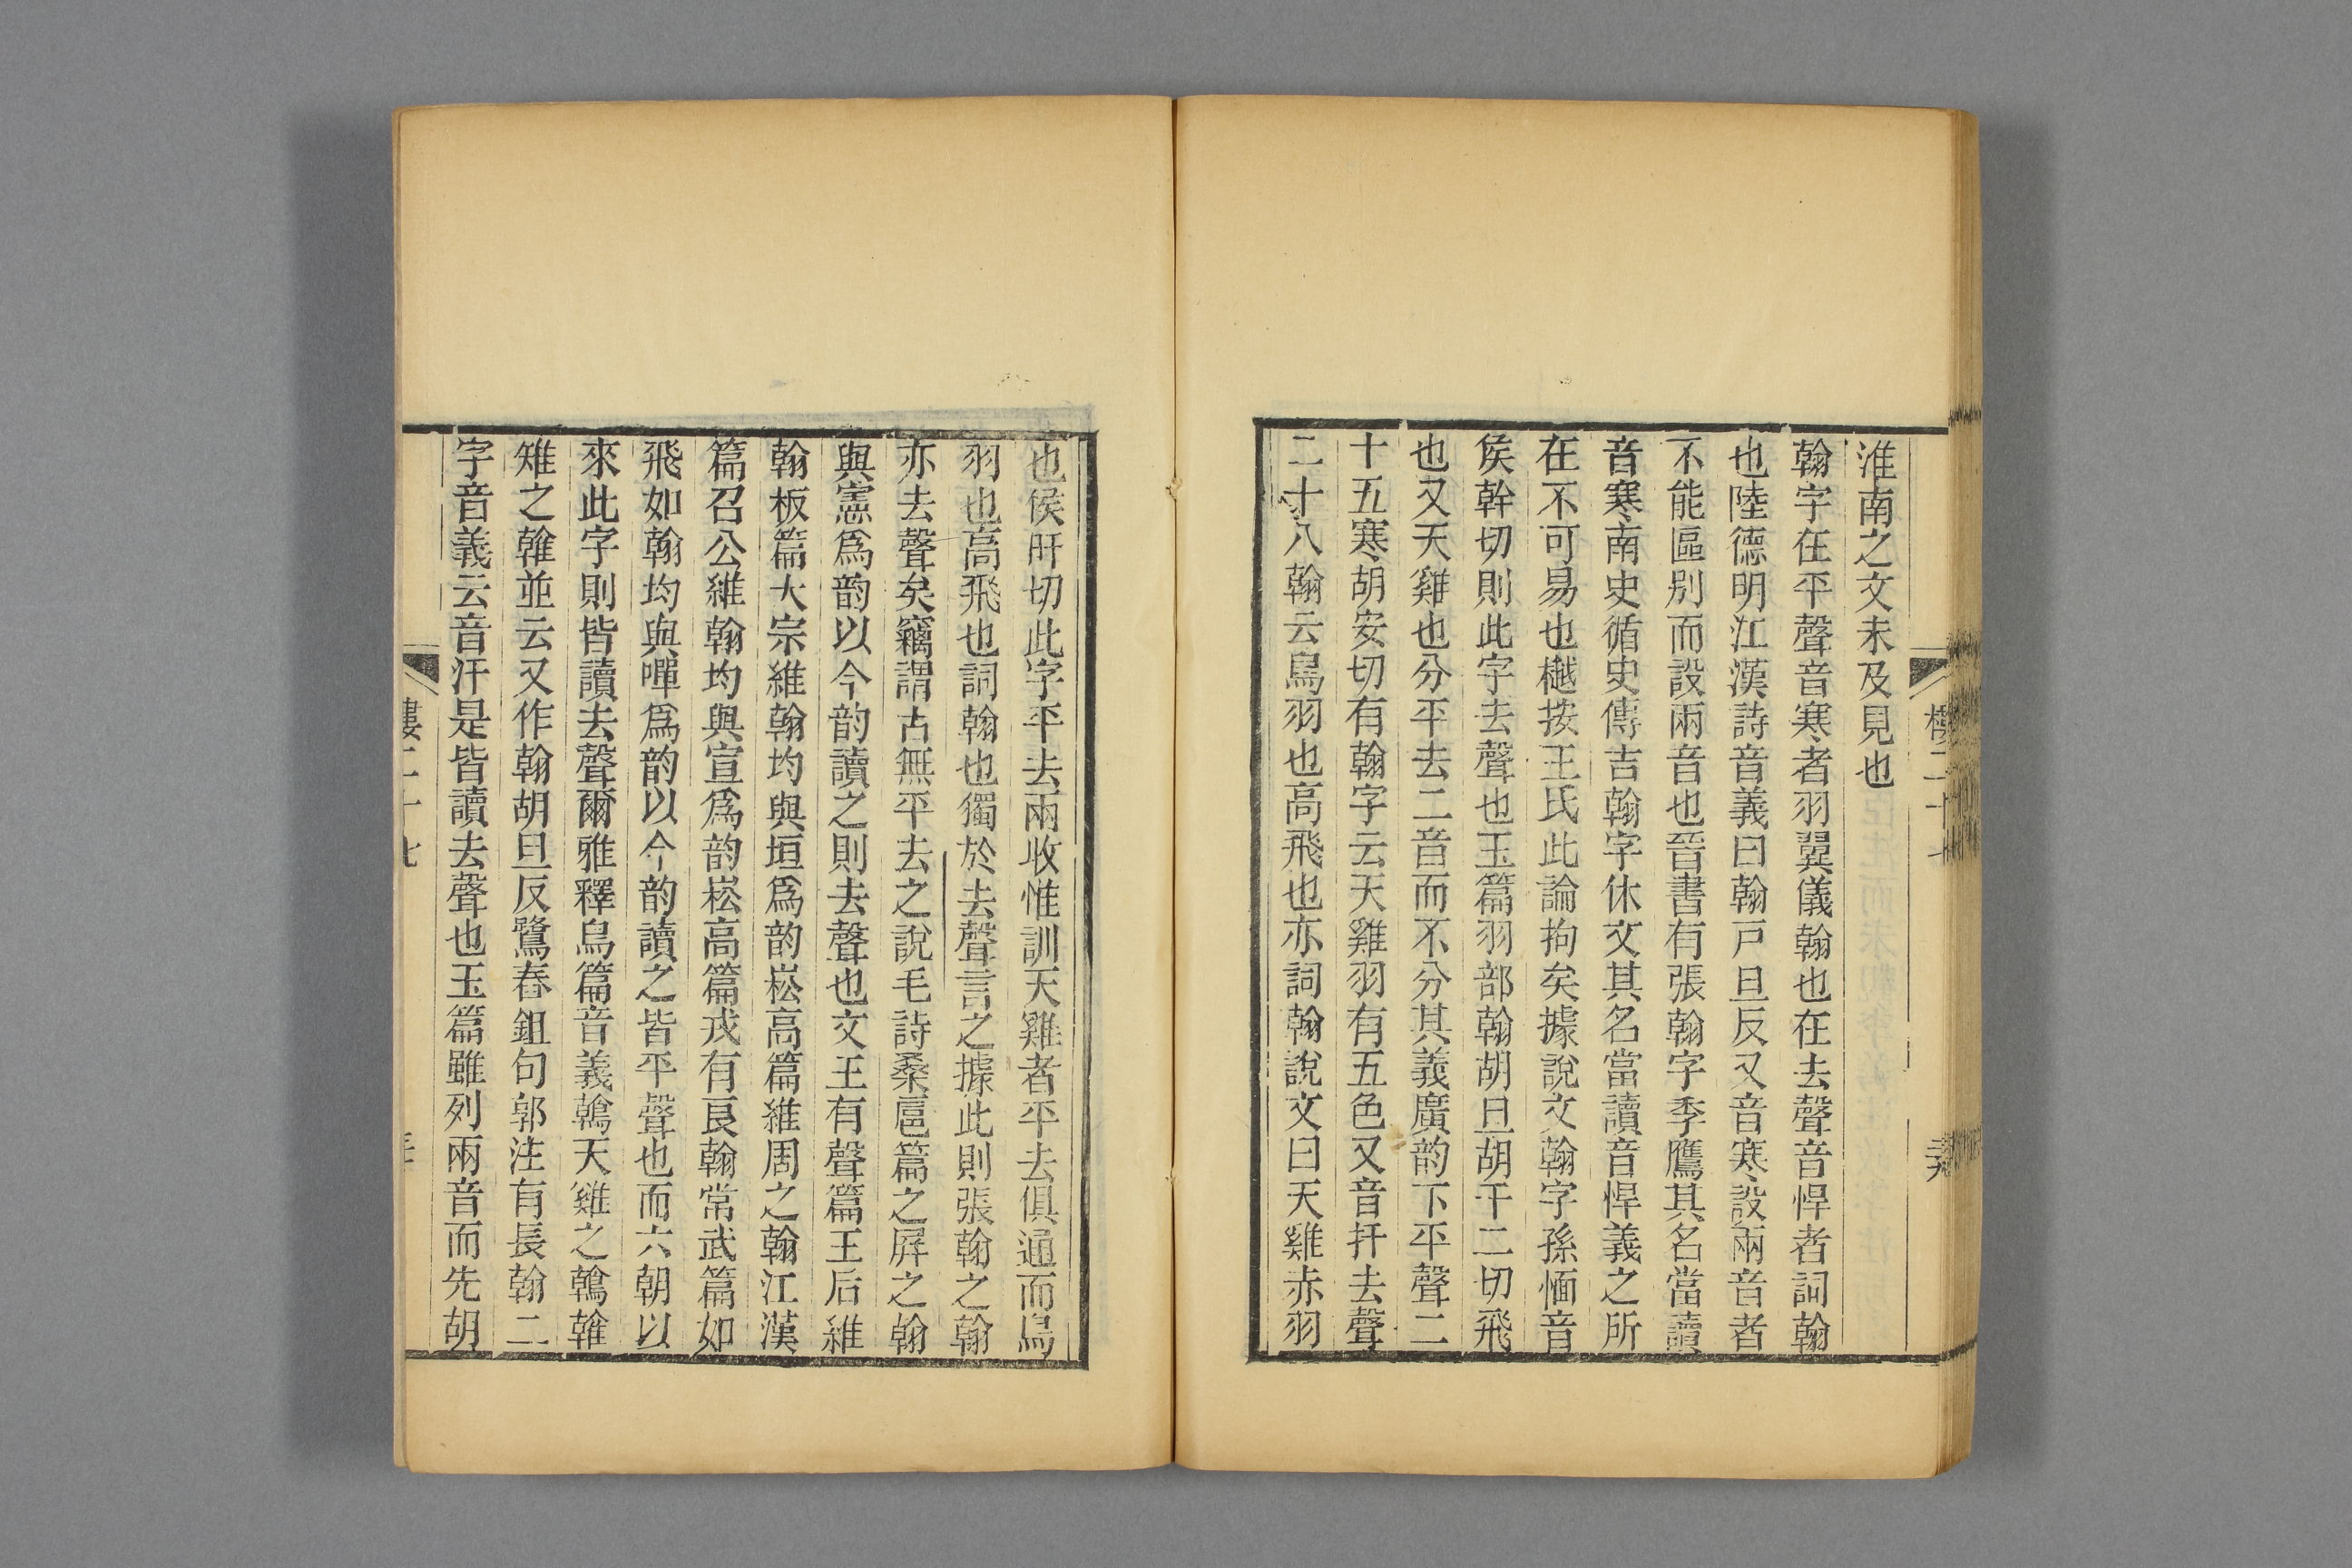 淮南之文未及見也
翰字在平聲音寒者羽翼儀翰也在去聲音悍者詞翰
也陸德明江漢詩音義曰翰戸旦反又音寒設兩音者
不能區别而設兩音也晉書有張翰字季鷹其名當讀
音寒南史循史傳吉翰字休文其名當讀音悍義之所
在不可易也樾按王氏此論拘矣據說文翰字孫愐音
矦幹切則此字去聲也玉篇羽部翰胡旦胡干二切飛
也又天雞也分平去二音而不分其義廣韵下平聲二
十五寒胡安切有翰字云天雞羽有五色又音扞去聲
二十八翰云鳥羽也高飛也亦詞翰說文曰天雞赤羽
也侯旰切此字平去兩收惟訓天雞者平去俱通而鳥
羽也高飛也詞翰也獨於去聲言之據此則張翰之翰
亦去聲矣竊謂古無平去之說毛詩桑扈篇之屛之翰
與憲爲韵以今韵讀之則去聲也文王有聲篇王后維
翰板篇大宗維翰均與垣爲韵崧高篇維周之翰江漢
篇召公維翰均與宣爲韵崧高篇戎有良翰常武篇如
飛如翰均與嘽爲韵以今韵讀之皆平聲也而六朝以
來此字則皆讀去聲爾雅釋鳥篇音義鶾天雞之鶾雗
雉之雗並云又作翰胡旦反鷺舂鉏句郭注有長翰二
字音義云音汗是皆讀去聲也玉篇雖列兩音而先胡